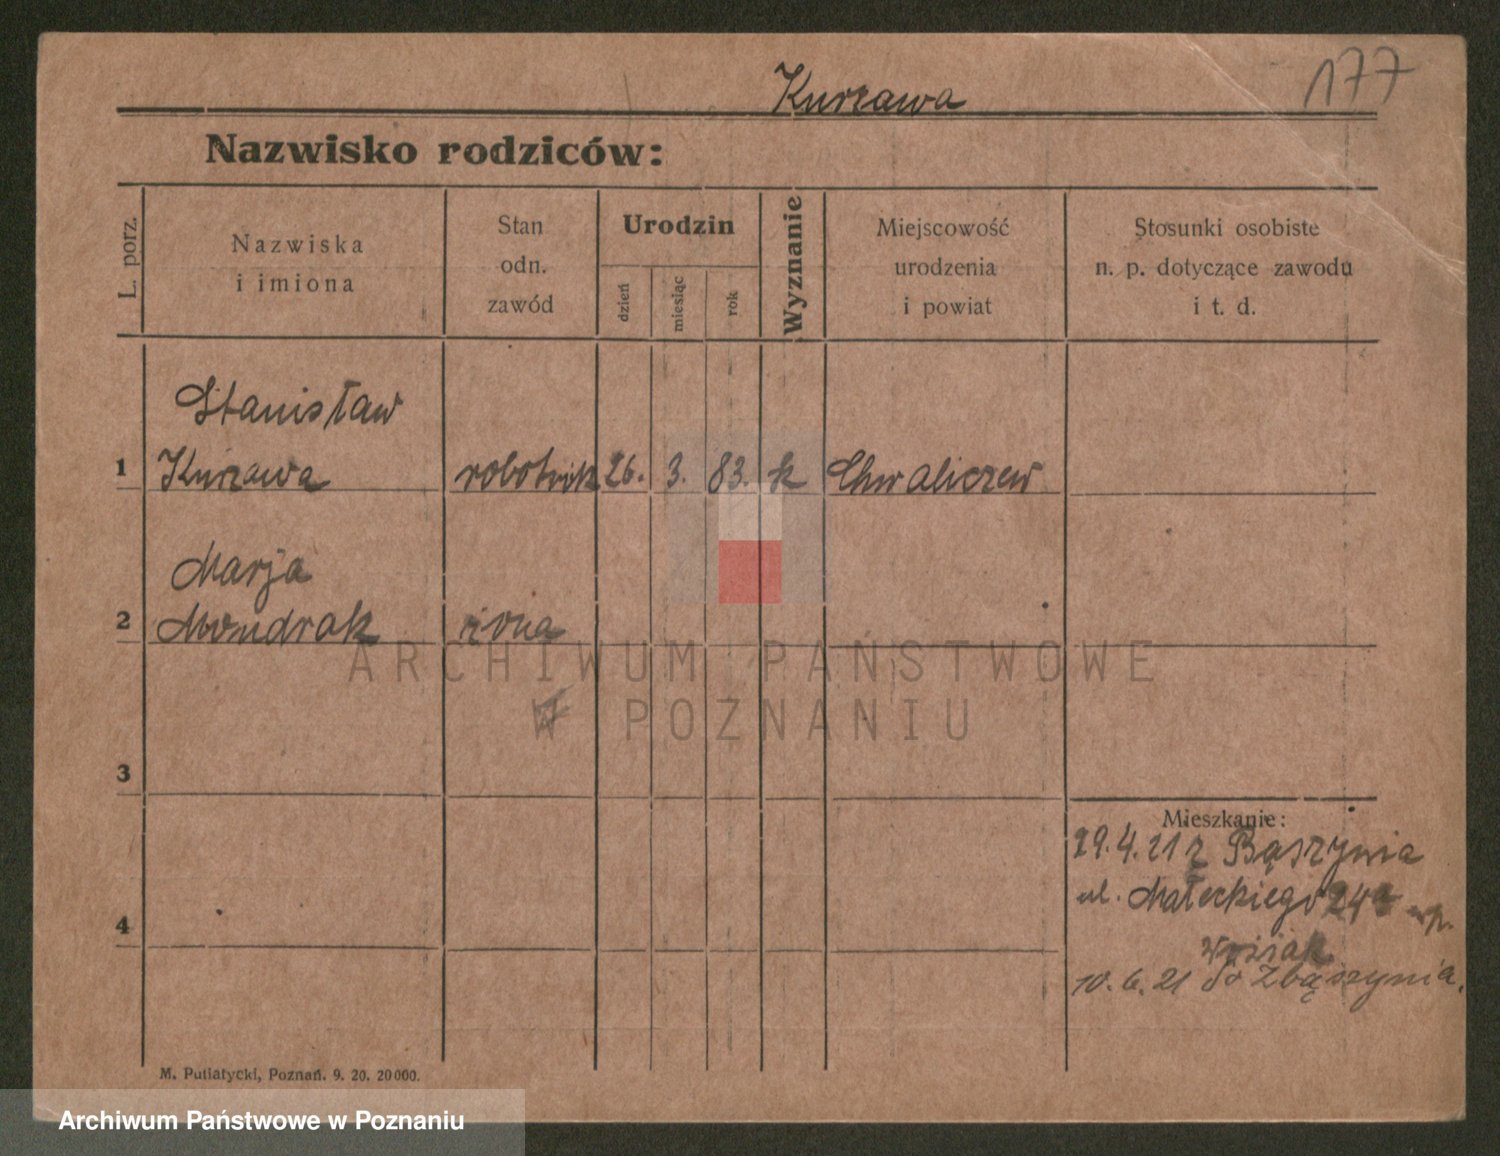 177
Kurzawa
Nazwisko rodziców:
L. porz.
Nazwiska
i imiona
Stan
odn.
zawód
Urodzin
dzień
miesiąc
rok
Wyznanie
Miejscowość
urodzenia
i powiat
Stosunki osobiste
n. p. dotyczące zawodu
i t. d.
Stanisław
1 Kurzawa robotnik 26. 3. 83. k Chwaliczew
Marja
2 żona
ARCHIWUM PAŃSTWOWE
W POZNANIU
3
Mieszkanie:
29.4.21 z Bąszynia
ul. Małeckiego 24a
4
10.6.21 do Zbąszynia.
M. Putiatycki, Poznań. 9. 20. 20000.
Archiwum Państwowe w Poznaniu